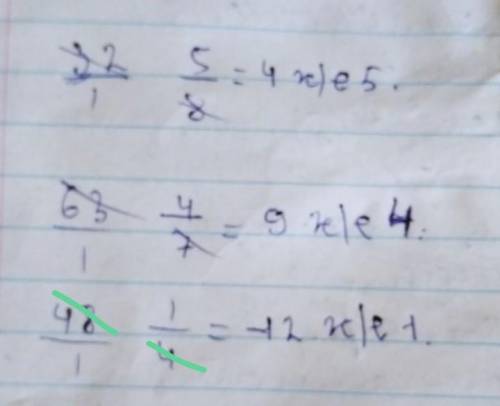 32/1 5/8 = 4 x/e 5.
63/1 4/7 = 9 x/e 4.
48/1 1/4 = 12 x/e 1.